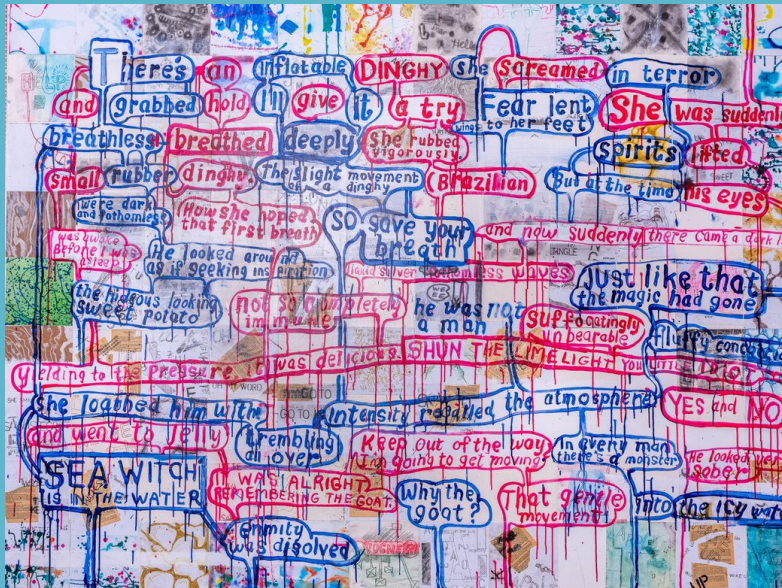 There's an inflatable DINGHY she screamed in terror
and grabbed hold I'll give it a try Fear lent wings to her feet She was suddenly
breathless breathed deeply She rubbed vigorously. spirits lifted
small rubber dinghy. The slight movement of a dinghy (Brazilian But at the time his eyes
were dark and fathomless
(How she hoped that first breath
SO save your breath
and now suddenly there came a dark
was awake before I was
He looked around as if seeking inspiration
liquid silver waves
Just like that the magic had gone
the hideous looking sweet potato
not so completely immune
he was not a man
suffocatingly unbearable
Fluffy
yielding to the pressure it was delicious. SHUN THE LIMELIGHT YOU LITTLE IDIOT
she him with intensity the atmosphere YES and NO
and went to Jelly trembling all over KEEP out of the way I'm going to get moving! In every man there's a monster He looked very sober
SEA WITCH IS IN THE WATER
WAS ALRIGHT REMEMBERING THE GOAT.
Why the goat?
That gentle movement!
into the icy
enmity was disolved